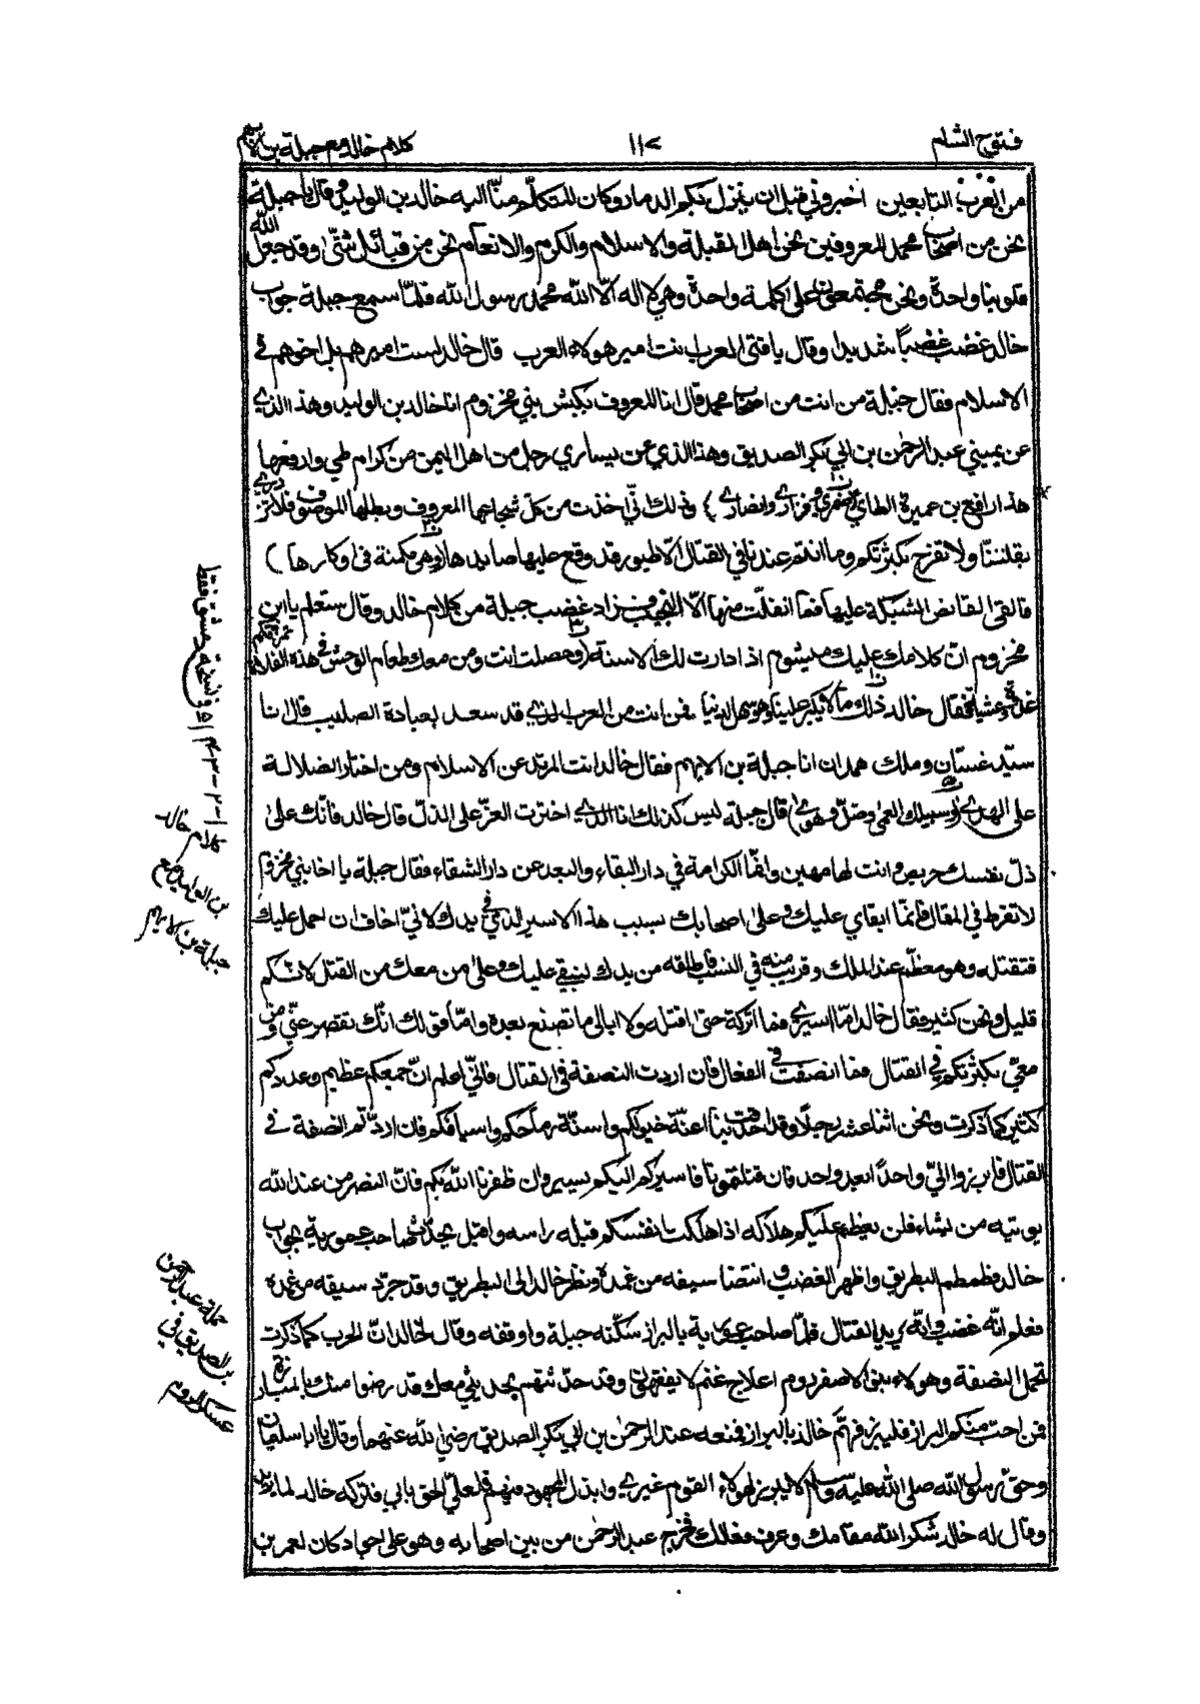 فتوح الشام
١١٧
كلام خالد مع جبلة بن الايهم
من العرب التابعين اخبروني قبل ان ينزل بكم الدمار وكان المتكلّم منّا اليه خالد بن الوليد وقال يا جبلة
نحن من اصحاب محمد المعروفين نحن اهل القبلة والاسلام والكرم والانعام نحن من قبائل شتّى وقد جعل الله
قلوبنا واحدة ونحن مجتمعون على كلمة واحدة وهي لا اله الّا الله محمد رسول الله فلمّا سمع جبلة جواب
خالد غضب غضبًا شديدا وقال يا فتى العرب انت امير هولاء العرب قال خالد لست اميرهم بل اخوهم في
الاسلام فقال جبلة من انت من اصحاب محمد قال انا المعروف بكبش بني مخزوم انا خالد بن الوليد وهذا الذي
عن يميني عبد الرحمٰن بن ابي بكر الصديق وهذا الذي عن يساري رجل من اهل اليمن من كرام طي وارفعها
هذا رافع بن عميرة الطاي وذلك انّي اخذت من كلّ شجاعها المعروف وبطلها الموصوف فلا تزدري
بقلتنا ولا تفرح بكثرتكم وما انتم عندنا في القتال الّا طيور قد وقع عليها صايدها وهي مكمنة في اوكارها )
فالقى القانص الشبكة عليها فما انفلت منها الّا النجيب فزاد غضب جبلة من كلام خالد وقال ستعلم يا ابن
مخزوم انّ كلامك عليك ميشوم اذا دارت لك الاسنة وحصلت انت ومن معك طعام الوحش في هذه الفلاة
غدوة وعشيا فقال خالد ذلك ما لا يكبر علينا وهو سهل لدينا فمن انت من العرب الذي قد سعد بعبادة الصليب قال انا
سيّد غسّان وملك همدان انا جبلة بن الايهم فقال خالد انت المرتد عن الاسلام ومن اختار الضلالة
على الهدى وسبيلك العمى وضلّ وهوى قال جبلة ليس كذلك انا الذي اخترت العزّ على الذلّ قال خالد فانّك على
ذلّ نفسك حريص وانت لها مهين وانّما الكرامة في دار البقاء والبعد عن دار الشقاء فقال جبلة يا اخا بني مخزوم
لا تفرط في المقال فانّما ابقاي عليك وعلى اصحابك بسبب هذا الاسير الذي في يدك لانيّ اخاف ان احمل عليك
فتقتله وهو معظّم عند الملك وقريب منه في النسب فاطلقه من يدك لنبقي عليك وعلى من معك من القتل لانّكم
قليل ونحن كثير فقال خالد امّا اسيري فما اتركه حتى اقتله ولا ابالي ما تصنع بعده وامّا قولك انّك تقصر عنّي وعن من
معي بكثرتكم في القتال فما انصفت في الفعال فان اردت النصفة في القتال فانّي اعلم انّ جمعكم عظيم وعددكم
كثير كما ذكرت ونحن اثنا عشر رجلًا وقد احدقت بنا اعنّة خيولكم واسنّة رماحكم واسيافكم فان اردّتم النصفة في
القتال فابرزوا اليّ واحدًا بعد واحد فان قتلتمونا فاسيركم اليكم يسير وان ظفرنا الله بكم فانّ النصر من عند الله
يوتيه من يشاء فلن يعظم عليكم هلاكه اذا هلكت انفسكم قبله راسه واقبل يحدّث صاحب عمورية بجواب
خالد فطمطم البطريق واظهر الغضب وانتضا سيفه من غمده ونظر خالد الى البطريق وقد جرّد سيفه من غمده
فعلم انّه غضب وانّه يريد القتال فلمّا صاحب عمورية بالبراز سكّنه جبلة واوقفه وقال لخالد انّ الحرب كما ذكرت
تحمل النصفة وهولاء بنو الاصفر روم اعلاج غتم لا يفقهون وقد حدّثتهم بحديثي معك قد رضوا منك بالمبارزة
فمن احبّ منكم البراز فليبرز فهمّ خالد بالبراز فمنعه عبد الرحمٰن بن ابي بكر الصديق رضي الله عنهما وقال يا ابا سليمان
وحقّ رسول الله صلى الله عليه وسلم لا يبرز لهولاء القوم غيري وابذل المجهود فيهم فلعلي الحق بابي فتركه خالد لما يريد
وقال له خالد شكر الله مقامك وعرف فعالك فخرج عبد الرحمٰن من بين اصحابه وهو على جواد كان لعمر بن
١—٢—٣ وفي نسخة دمشق فقط
كلام خالد
بن الوليد مع
جبلة بن الايهم
حملة عبد الرحمن
بن الصديق في
عسكر الروم